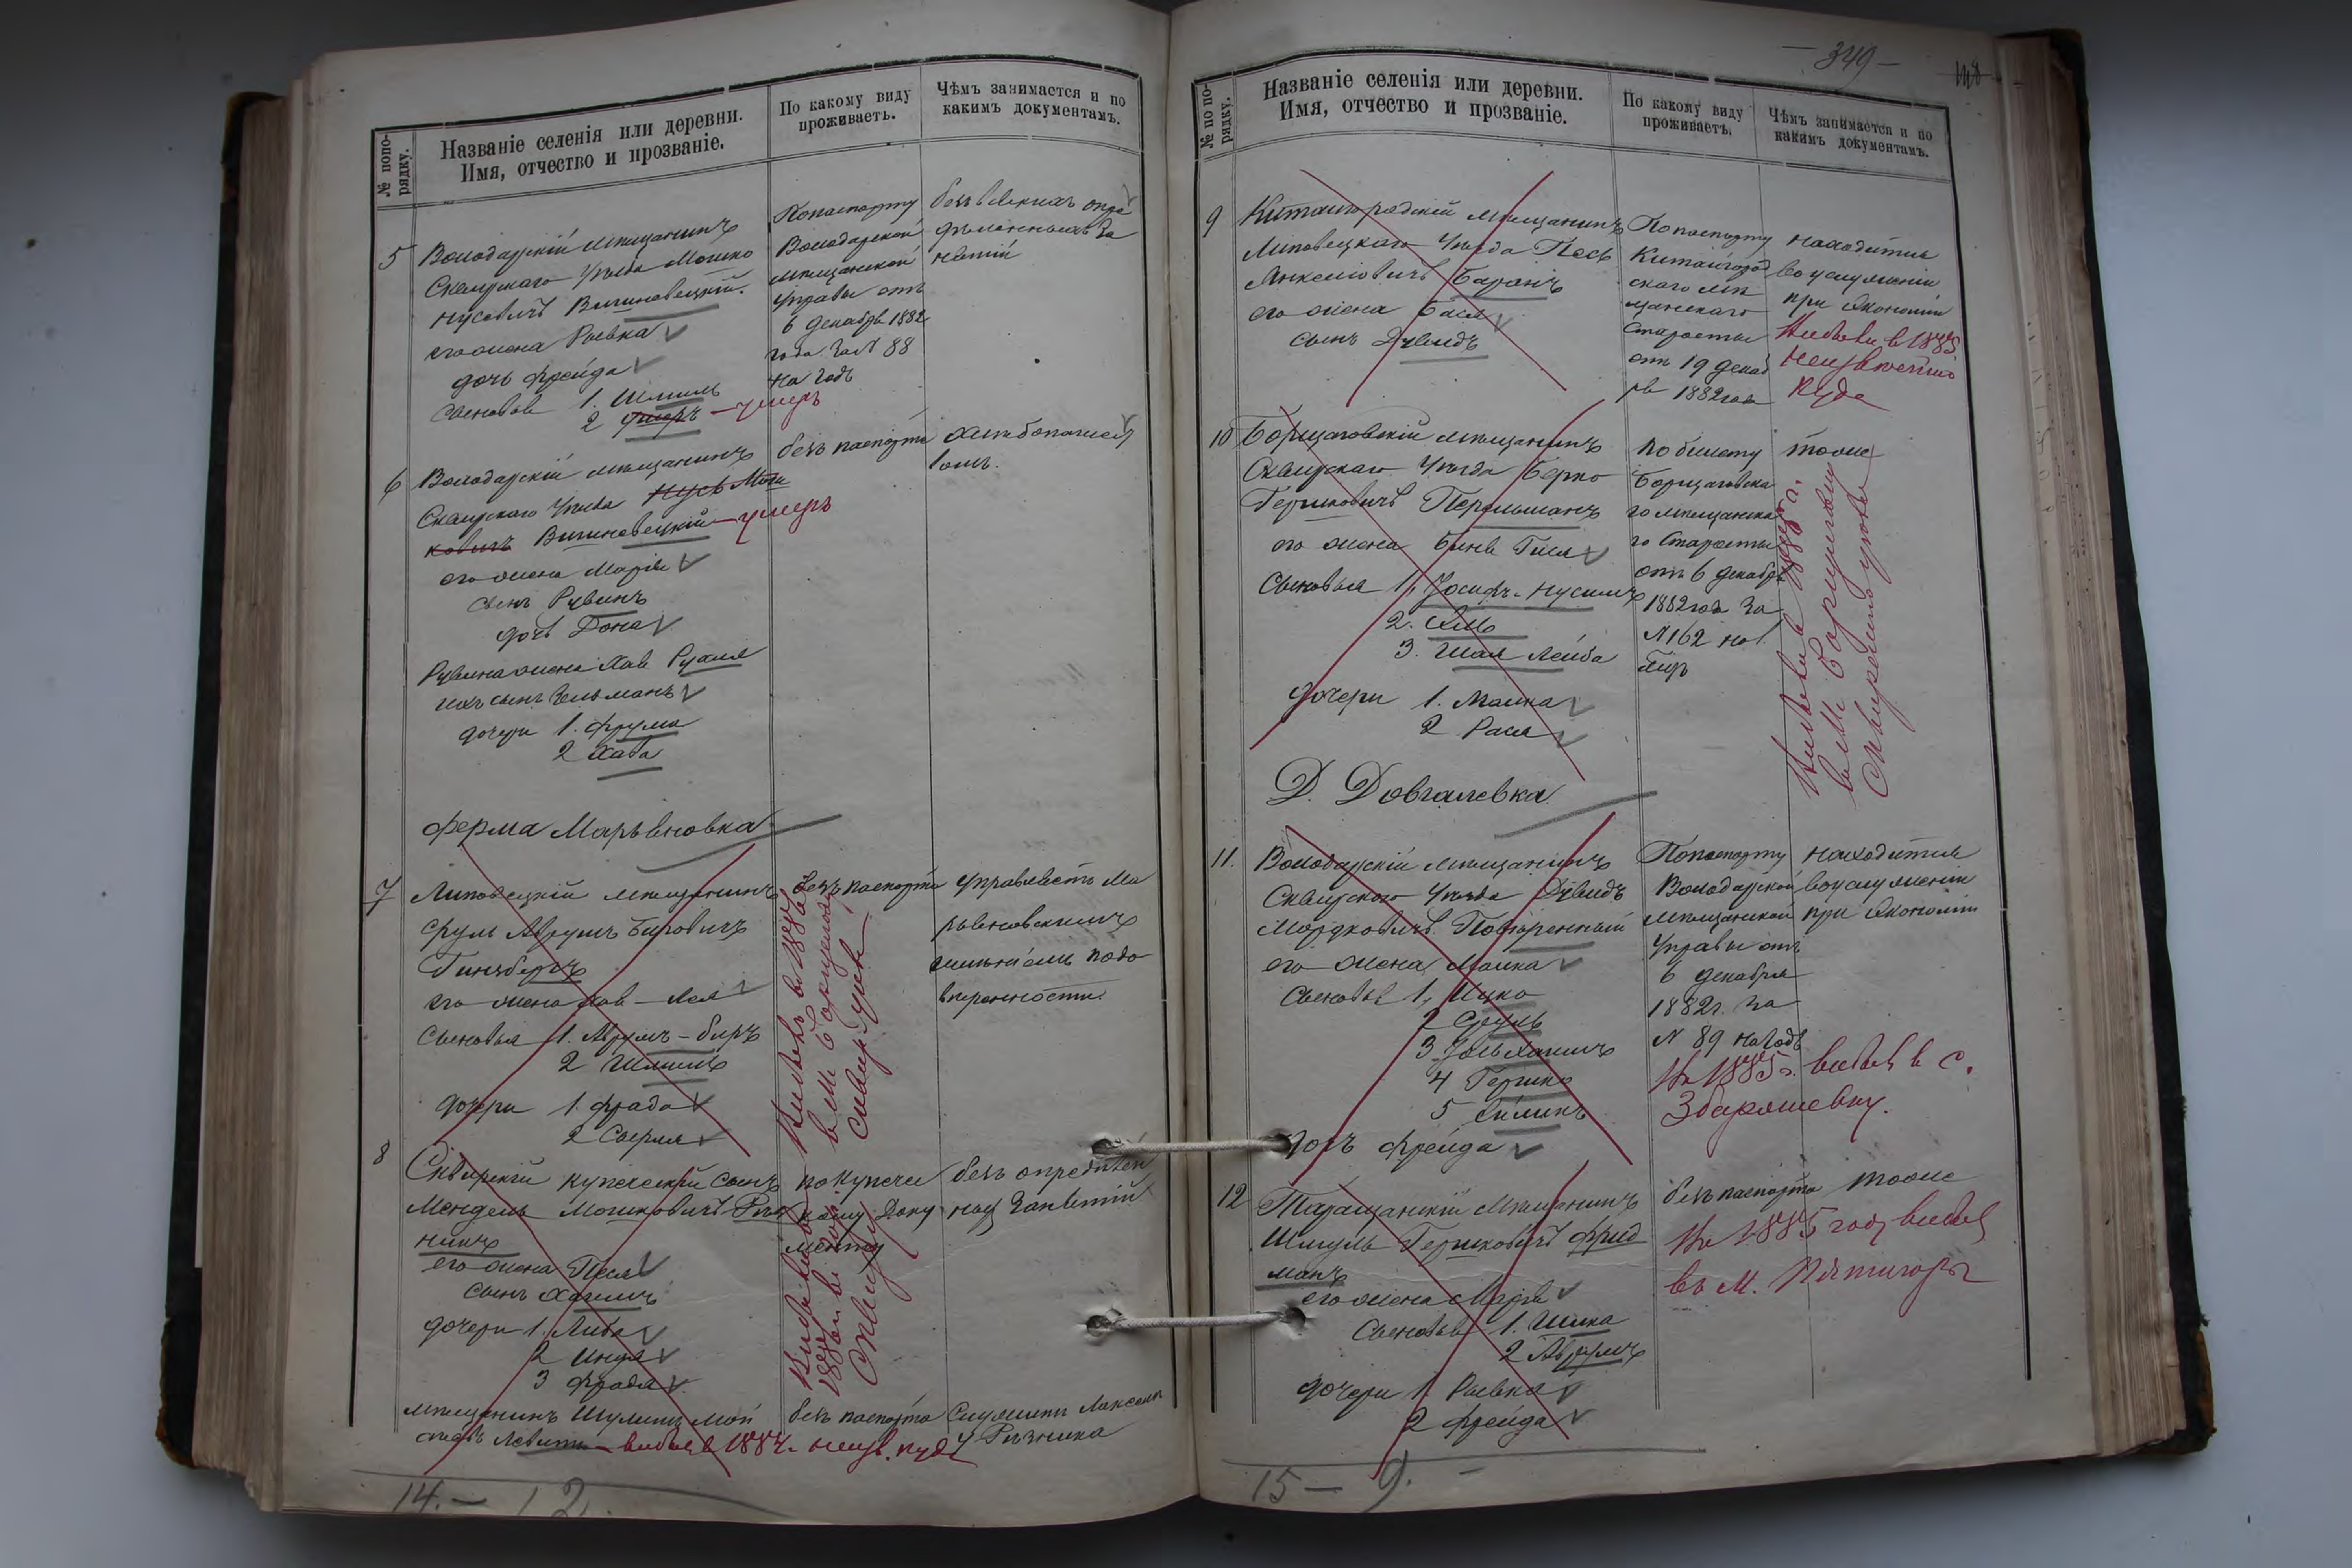 № попо-
рядку.
Названіе селенія или деревни.
Имя, отчество и прозваніе.
По какому виду
проживаетъ.
Чѣмъ занимается и по
какимъ документамъ.
5
Володарскій мѣщанинъ
Сквирскаго Уѣзда Мошко
Нусевичъ Вишневецкій.
его жена Рывка
дочь Фрейда
Сыновья 1. Шмиль
2 – умеръ
По паспорту
Володарской
мѣщанской
Управы отъ
6 декабря 1882
года за № 88
на годъ
безъ всякихъ опре
дѣленныхъ за
нятій
6
Володарскій мѣщанинъ
Сквирскаго Уѣзда Нусь Мош
ковичъ Вишневецкій – умеръ
его жена Марія
сынъ Рувинъ
дочь Дона
Рувина жена Хая Рухля
ихъ сынъ Зельманъ
дочери 1. Фрума
2 Хава
безъ паспорта
Ферма Марьяновка
7
Липовецкій мѣщанинъ
Сруль Аврумъ Беровичъ
Гинзбергъ
его жена Хая – Лея
Сыновья 1. Аврумъ – Беръ
2 Шмиль
дочери 1. Фрада
2 Сверля
безъ паспорта
Управляетъ Ма
рьяновскимъ
имѣніемъ по до
вѣренности.
8
Сквирскій купеческій сынъ
Мендель Мошковичъ Рѣз
никъ
его жена Песя
сынъ Хаимъ
дочери 1. Либа
2 Индя
3 Фрадя
по купечес
кому доку
менту
безъ опредѣлен
ныхъ занятій
мѣщанинъ Шулимъ Мой
– выбылъ в 1884 г. неизв. куда
безъ паспорта
У Рѣзника
14. – 12.
– 349 –
№ по по-
рядку.
Названіе селенія или деревни.
Имя, отчество и прозваніе.
По какому виду
проживаетъ.
Чѣмъ занимается и по
какимъ документамъ.
9
Китайгородскій мѣщанинъ
Липовецкаго Уѣзда Іось
Анкелювичъ Баранъ
его жена Бася
сынъ Дувидъ
По паспорту
Китайгород
скаго мѣ
щанскаго
старосты
отъ 19 декаб
ря 1882 года
находится
во услуженіи
при Экономіи
Выбыли в 1885
неизвестно
куда
10
Борщаговскій мѣщанинъ
Сквирскаго Уѣзда Берко
Гершковичъ Перельманъ
его жена Бина Гися
Сыновья 1, Іосифъ-Нусинъ
2.
3. Шая Лейба
дочери 1. Малка
2 Рася
По билету
Борщаговска
го мѣщанска
го Старосты
отъ 6 декабря
1882 года за
№ 162 на 1.
тоже
Д. Довгалевка
11.
Володарскій мѣщанинъ
Сквирскаго Уѣзда Дувидъ
Мордковичъ
его жена Малка
Сыновья 1, Ицко
2 Сруль
3. Іось Хаимъ
4 Гершко
5
дочь Фрейда
По паспорту
Володарской
мѣщанской
Управы отъ
6 декабря
1882 г. за
№ 89 на годъ
находится
во услуженіи
при Экономіи
На 1885 г. выбыл в с.
Збаражевку.
12
Таращанскій мѣщанинъ
Шмуль Гершковичъ Фрид
манъ
его жена Марія
Сыновья 1. Шика
2 Аврумъ
дочери 1. Рывка
2 Фрейда
безъ паспорта
тоже
На 1885 год выбыл
въ м. Пятигоры
15 – 9. –